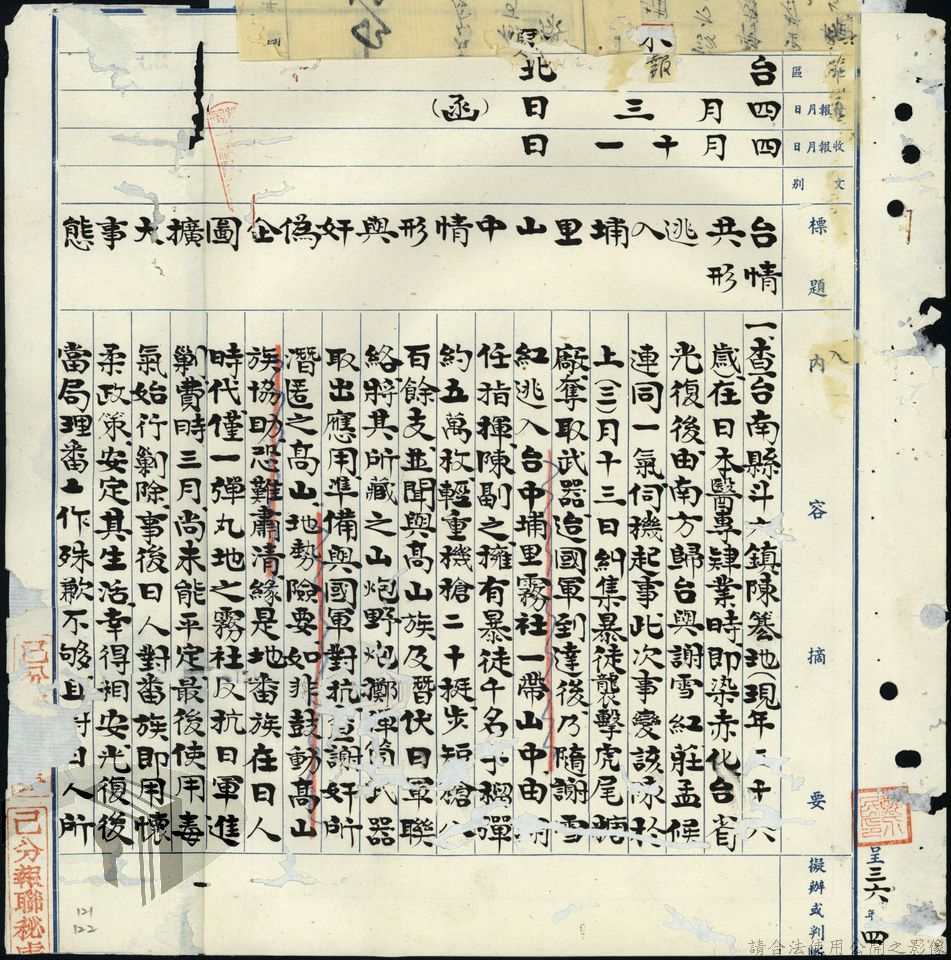 台 北
區
四 月 三 日 (函)
日月報發
四 月 十 一 日
日月報收
別 文
標題
台情
共形
逃入埔里山中情形與奸偽企圖擴大事態
內容摘要
一、查台南縣斗六鎮陳篡地(現年三十八
歲)在日本醫專肄業時即染赤化台省
光復後由南方歸台與謝雪紅莊孟侯
連同一氣伺機起事此次事變該於
上(三)月十三日糾集暴徒襲擊虎尾
廠奪取武器迨國軍到達後乃隨謝雪
紅逃入台中埔里霧社一帶山中由謝
任指揮陳副之擁有暴徒千名手榴彈
約五萬枚輕重機槍二十挺步短槍八
百餘支並聞與高山族及潛伏日軍聯
絡將其所藏之山炮野炮擲彈筒武器
取出應用準備與國軍對抗查謝奸所
潛匿之高山地勢險要如非鼓動高山
族協助恐難肅清緣是地番族在日人
時代僅一彈丸地之霧社反抗日軍進
剿費時三月尚未能平定最後使用毒
氣始行剿除事後日人對番族即用懷
柔政策安定其生活幸得相安光復後
當局理番工作殊歉不够且對日人所
擬辦或判斷
呈 三六年四
已分報聯秘
121
122
請合法使用公開之影像